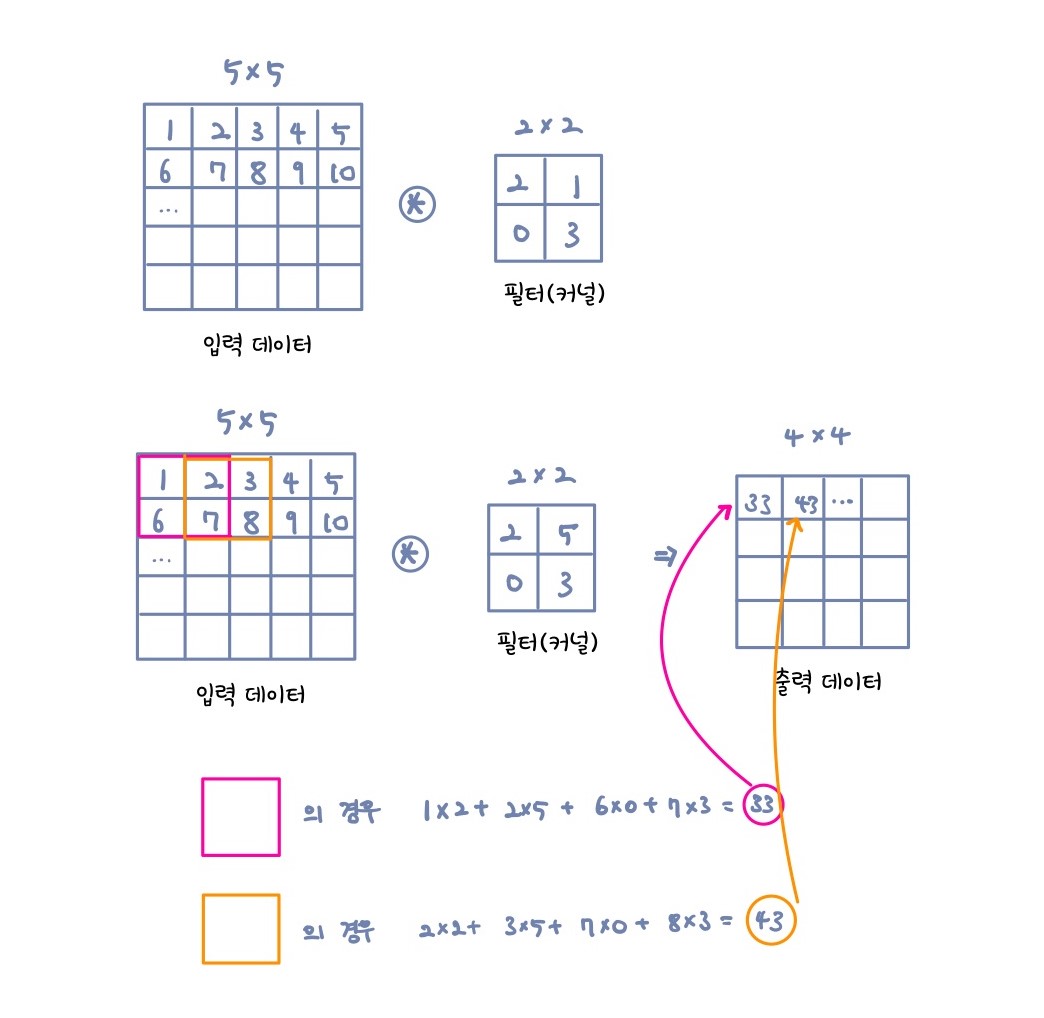 5×5
1 2 3 4 5
6 7 8 9 10
...
입력 데이터
⊛
2×2
2 1
0 3
필터(커널)
5×5
1 2 3 4 5
6 7 8 9 10
...
입력 데이터
⊛
2×2
2 5
0 3
필터(커널)
⇒
4×4
33 43 ...
출력 데이터
의 경우 1×2+ 2×5 + 6×0+7×3 = 33
의 경우 2×2+ 3×5+ 7×0 + 8×3 = 43